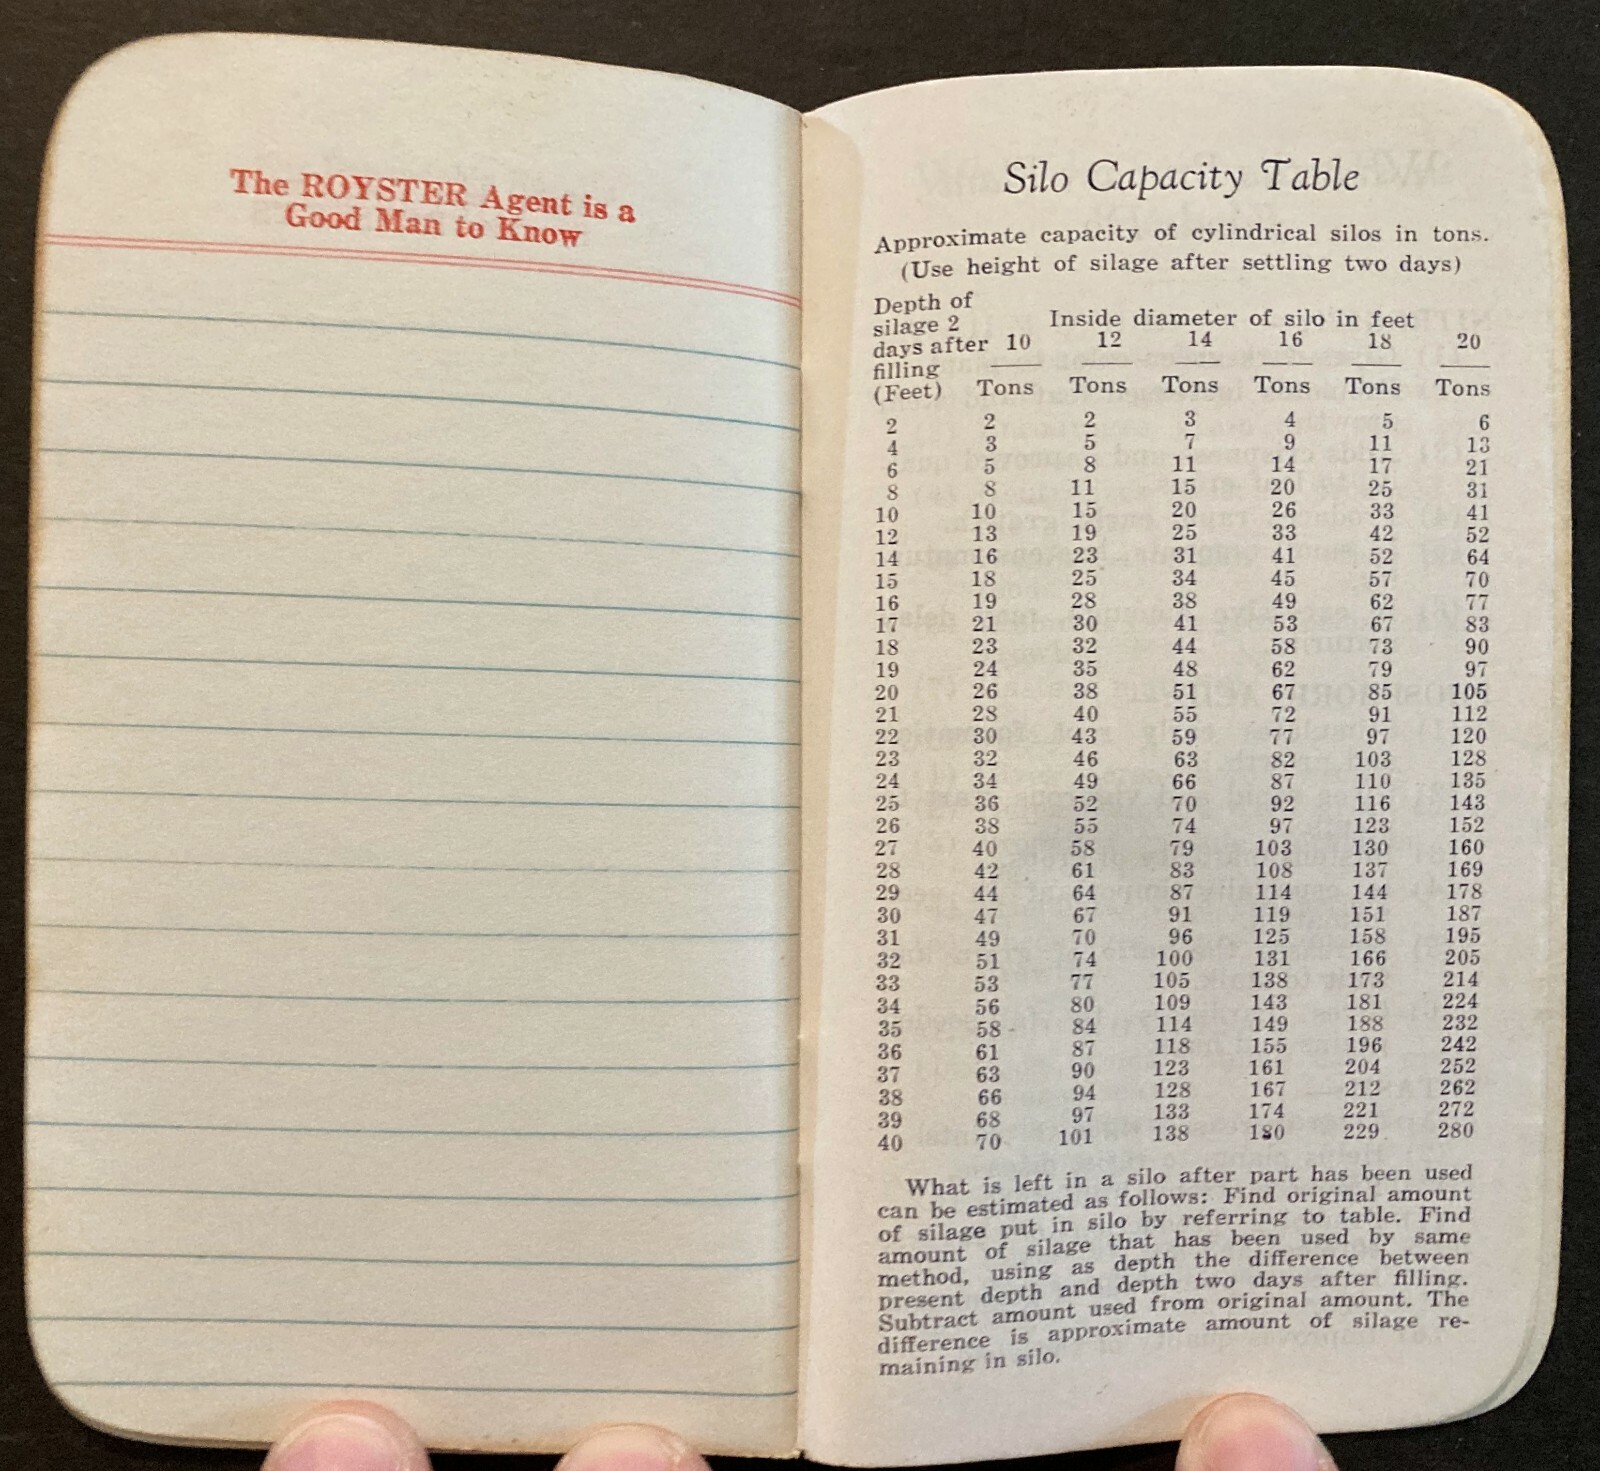 The ROYSTER Agent is a
Good Man to Know
Silo Capacity Table
Approximate capacity of cylindrical silos in tons.
(Use height of silage after settling two days)
Depth of
silage 2 Inside diameter of silo in feet
days after 10 12 14 16 18 20
filling
(Feet) Tons Tons Tons Tons Tons Tons
2 2 2 3 4 5 6
4 3 5 7 9 11 13
6 5 8 11 14 17 21
8 8 11 15 20 25 31
10 10 15 20 26 33 41
12 13 19 25 33 42 52
14 16 23 31 41 52 64
15 18 25 34 45 57 70
16 19 28 38 49 62 77
17 21 30 41 53 67 83
18 23 32 44 58 73 90
19 24 35 48 62 79 97
20 26 38 51 67 85 105
21 28 40 55 72 91 112
22 30 43 59 77 97 120
23 32 46 63 82 103 128
24 34 49 66 87 110 135
25 36 52 70 92 116 143
26 38 55 74 97 123 152
27 40 58 79 103 130 160
28 42 61 83 108 137 169
29 44 64 87 114 144 178
30 47 67 91 119 151 187
31 49 70 96 125 158 195
32 51 74 100 131 166 205
33 53 77 105 138 173 214
34 56 80 109 143 181 224
35 58 84 114 149 188 232
36 61 87 118 155 196 242
37 63 90 123 161 204 252
38 66 94 128 167 212 262
39 68 97 133 174 221 272
40 70 101 138 180 229 280
What is left in a silo after part has been used
can be estimated as follows: Find original amount
of silage put in silo by referring to table. Find
amount of silage that has been used by same
method, using as depth the difference between
present depth and depth two days after filling.
Subtract amount used from original amount. The
difference is approximate amount of silage re-
maining in silo.